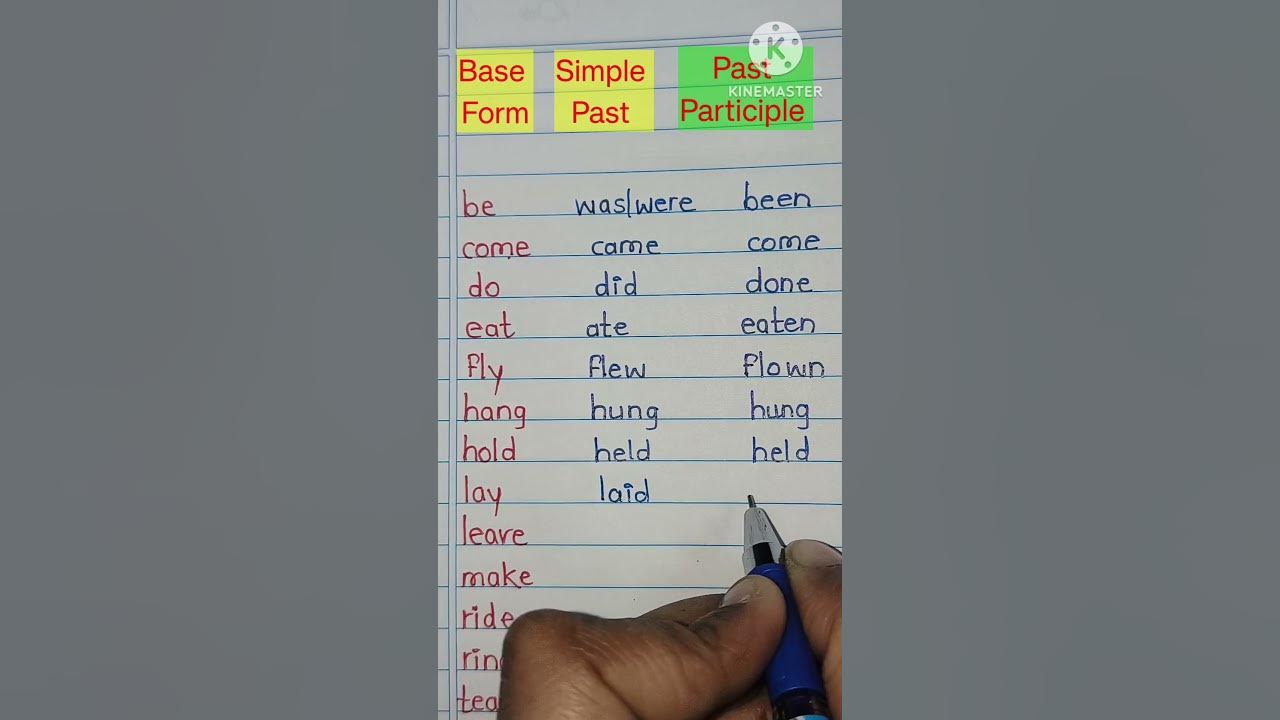 Base Simple Past
Form Past Participle
KINEMASTER
be was/were been
come came come
do did done
eat ate eaten
fly flew flown
hang hung hung
hold held held
lay laid
leave
make
ride